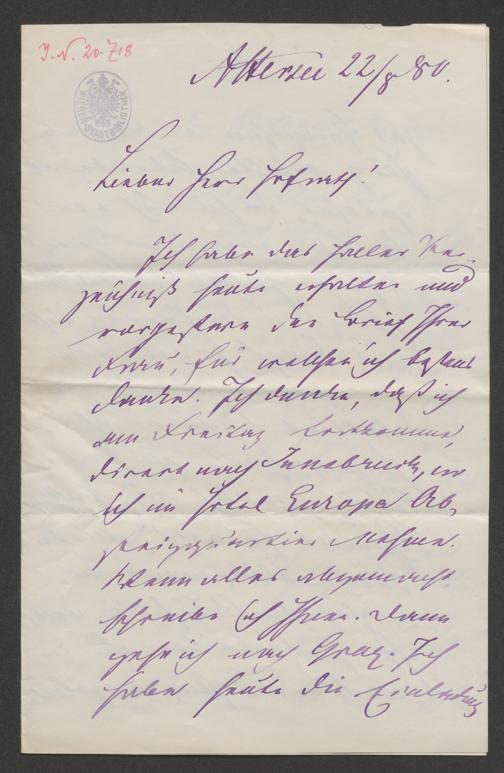 J. N. 20.718
WIENER STADTBIBLIOTHEK
Attersee 22/8 80.
Lieber Herr Hofrath!
Ich habe das Haller Ver-
zeichniß heute erhalten und
vorgestern den Brief Ihrer
Frau, für welchen ich bestens
danke. Ich denke, daß ich
am Freitag fortkomme,
direct nach Innsbruck, wo
ich im Hotel Europa Ab-
steigquartier nehme.
Wenn alles abgemacht
schreibe ich Ihnen. Dann
gehe ich nach Graz. Ich
habe heute die Einladung